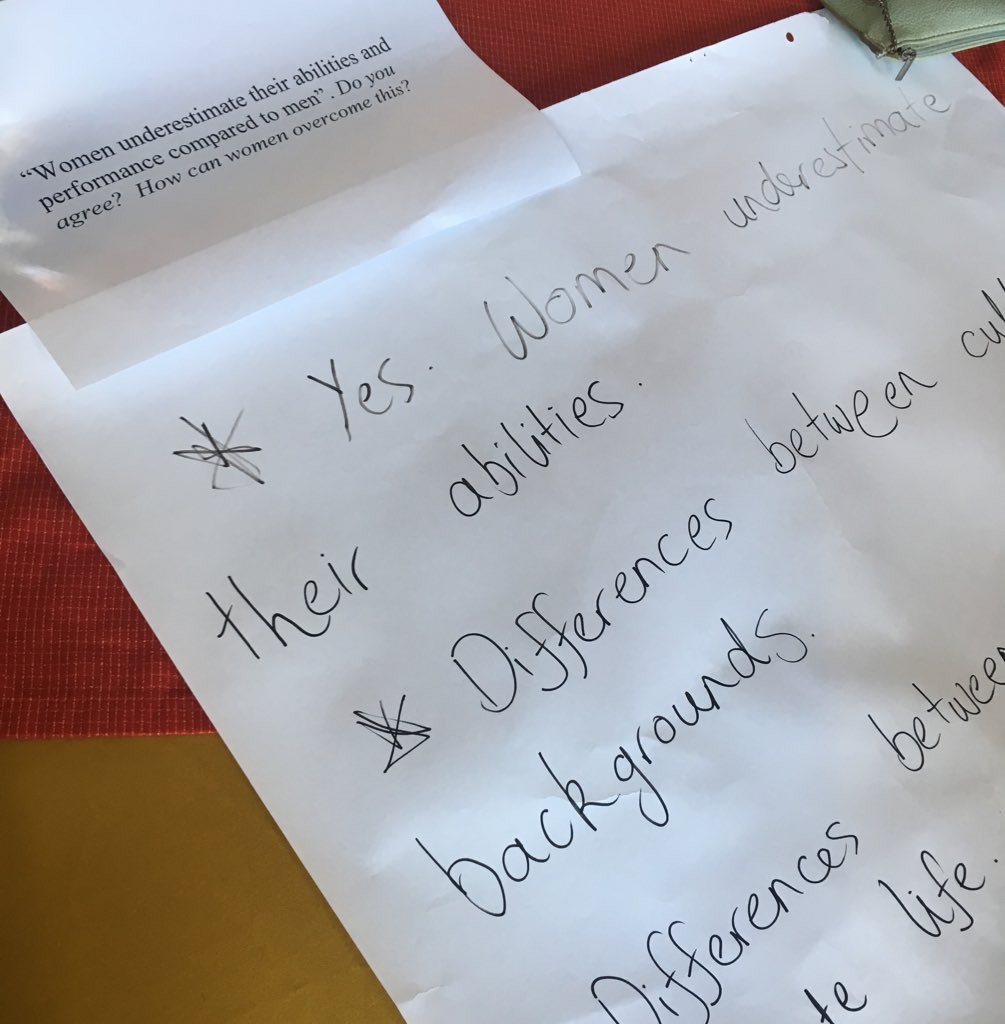 “Women underestimate their abilities and
performance compared to men”. Do you
agree? How can women overcome this?
* Yes. Women underestimate
their abilities.
* Differences between
backgrounds.
Differences between
life.